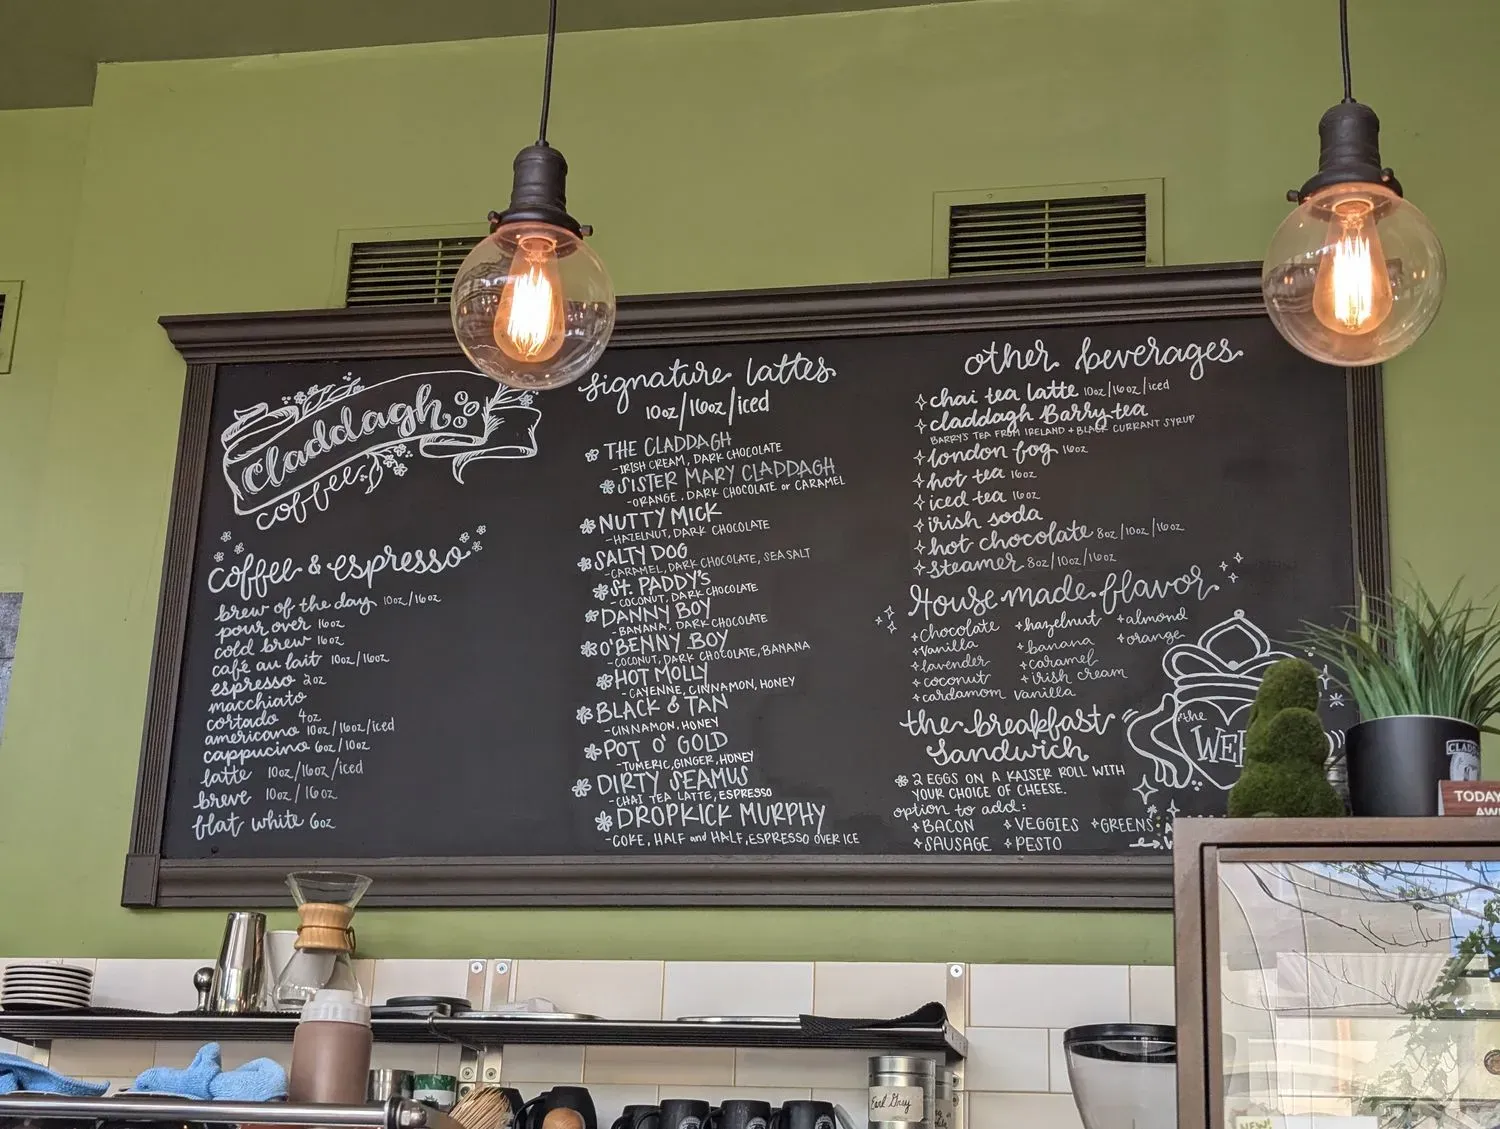 Claddagh
coffee
coffee & espresso
brew of the day 10oz/16oz
pour over 16oz
cold brew 16oz
café au lait 10oz/16oz
espresso 2oz
macchiato
cortado 4oz
americano 10oz/16oz/iced
cappucino 6oz/10oz
latte 10oz/16oz/iced
breve 10oz/16oz
flat white 6oz
signature lattes
10oz/16oz/iced
THE CLADDAGH
-IRISH CREAM, DARK CHOCOLATE
SISTER MARY CLADDAGH
-ORANGE, DARK CHOCOLATE or CARAMEL
NUTTY MICK
-HAZELNUT, DARK CHOCOLATE
SALTY DOG
-CARAMEL, DARK CHOCOLATE, SEA SALT
ST. PADDY'S
-COCONUT, DARK CHOCOLATE
DANNY BOY
-BANANA, DARK CHOCOLATE
O'BENNY BOY
-COCONUT, DARK CHOCOLATE, BANANA
HOT MOLLY
-CAYENNE, CINNAMON, HONEY
BLACK & TAN
-CINNAMON, HONEY
POT O' GOLD
-TUMERIC, GINGER, HONEY
DIRTY SEAMUS
-CHAI TEA LATTE, ESPRESSO
DROPKICK MURPHY
-COKE, HALF and HALF, ESPRESSO OVER ICE
other beverages
chai tea latte 10oz/16oz/iced
claddagh Barry tea
BARRY'S TEA FROM IRELAND + BLACK CURRANT SYRUP
london fog 16oz
hot tea 16oz
iced tea 16oz
irish soda
hot chocolate 8oz/10oz/16oz
steamer 8oz/10oz/16oz
House made flavor
+chocolate +hazelnut +almond
+vanilla +banana +orange
+lavender +caramel
+coconut +irish cream
+cardamom vanilla
the breakfast
sandwich
2 EGGS ON A KAISER ROLL WITH
YOUR CHOICE OF CHEESE.
option to add:
+BACON +VEGGIES +GREENS
+SAUSAGE +PESTO
the
TODAY
Earl Grey
NEW!